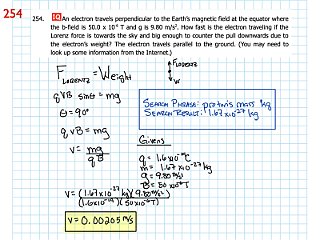 254
254. An electron travels perpendicular to the Earth's magnetic field at the equator where
the b-field is 50.0 x 10⁻⁶ T and g is 9.80 m/s². How fast is the electron traveling if the
Lorenz force is towards the sky and big enough to counter the pull downwards due to
the electron's weight? The electron travels parallel to the ground. (You may need to
look up some information from the Internet.)
FLORENTZ
FLORENTZ = Weight
mg
qvB sinθ = mg
θ = 90°
SEARCH PHRASE: proton's mass kg
SEARCH RESULT: 1.67x10⁻²⁷ kg
qvB = mg
v = mg
qB
Givens
q = 1.6x10⁻¹⁹C
m = 1.67x10⁻²⁷kg
g = 9.80 m/s²
B = 50x10⁻⁶T
v = (1.67x10⁻²⁷kg)(9.80m/s²)
(1.6x10⁻¹⁹)(50x10⁻⁶T)
v = 0.00205 m/s